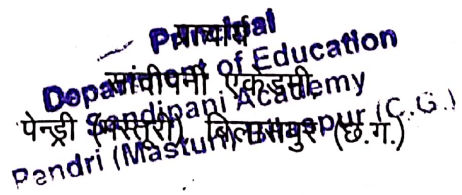 Principal
Department of Education
Sandipani Academy
Pendri (Masturi) Bilaspur (C.G.)
प्राचार्य
सांदीपनी एकेडमी,
पेन्ड्री (मस्तुरी), बिलासपुर (छ.ग.)